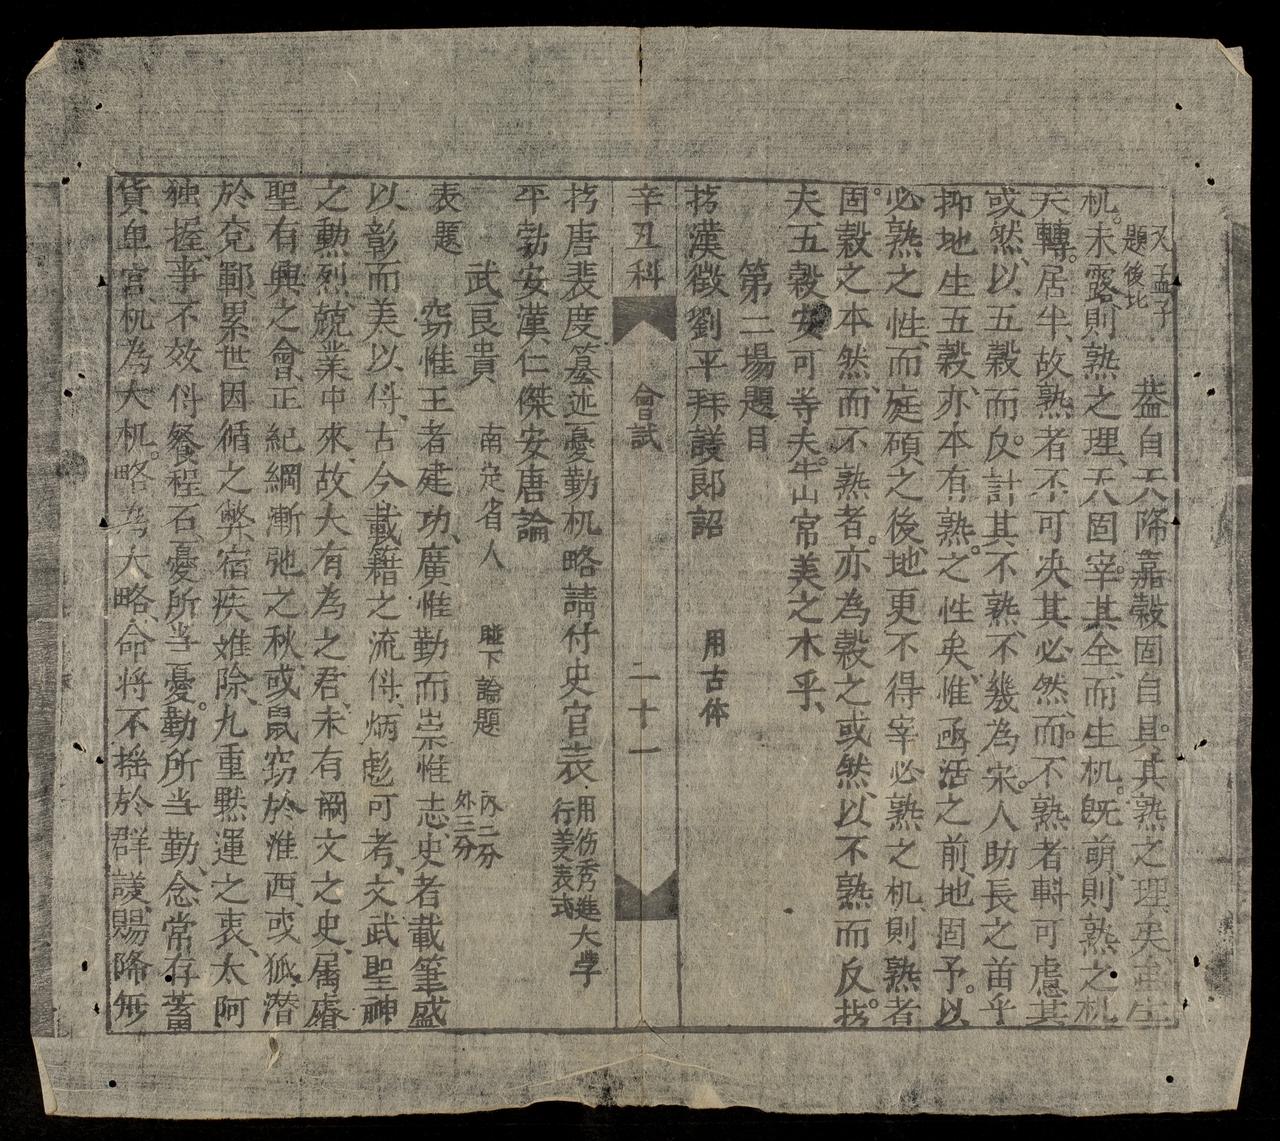 又孟子
題後比
蓋自天降嘉穀固自具其熟之理矣而生
机。未露則熟之理、天固宰其全、而生机既萌、則熟之机
天轉。居半、故熟者不可决其必然、而不熟者斡可慮其
或然、以五穀而反。計其不熟、不幾為宋人助長之苗乎
抑地生五穀、亦本有熟。之性矣、惟函活之前、地固予。以
必熟之性、而庭碩之後、地更不得宰必熟之机、則熟者
固。穀之本然、而不熟者。亦為穀之或然、以不熟而反。拷
夫五穀安可等夫牛。山常美之木乎、
第二場題目
拷漢徵劉平拜議郎詔 用古体
辛丑科 會試 二十一
拷唐裴度纂述憂勤机略請付史官表 用仿秀進大學
行義表式
平勃安漢、仁傑安唐論
表題 武艮貴 南定省人 睦下論題 內二分
外三分
窃惟王者建功、廣惟勤而崇惟志、史者載筆、盛
以彰而美以傳、古今載籍之流傳、炳彪可考、文武聖神
之勳烈、兢業中來、故大有為之君、未有闕文之史、屬睿
聖有興之會、正紀綱漸弛之秋、或鼠窃於淮西、或狐潛
於兗鄆、累世因循之弊、宿疾难除、九重默運之衷、太阿
独握、事不效傳餐程石、憂所当憂。勤所当勤、念常存蓄
貨自宮、机為大机。略為大略、命将不摇於群議、賜降無